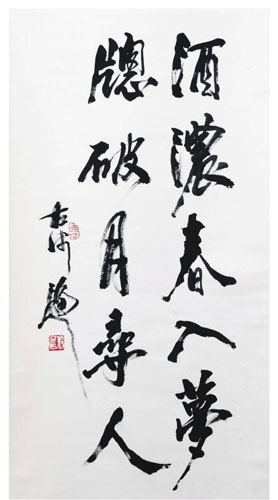 酒濃春入夢
窗破月尋人